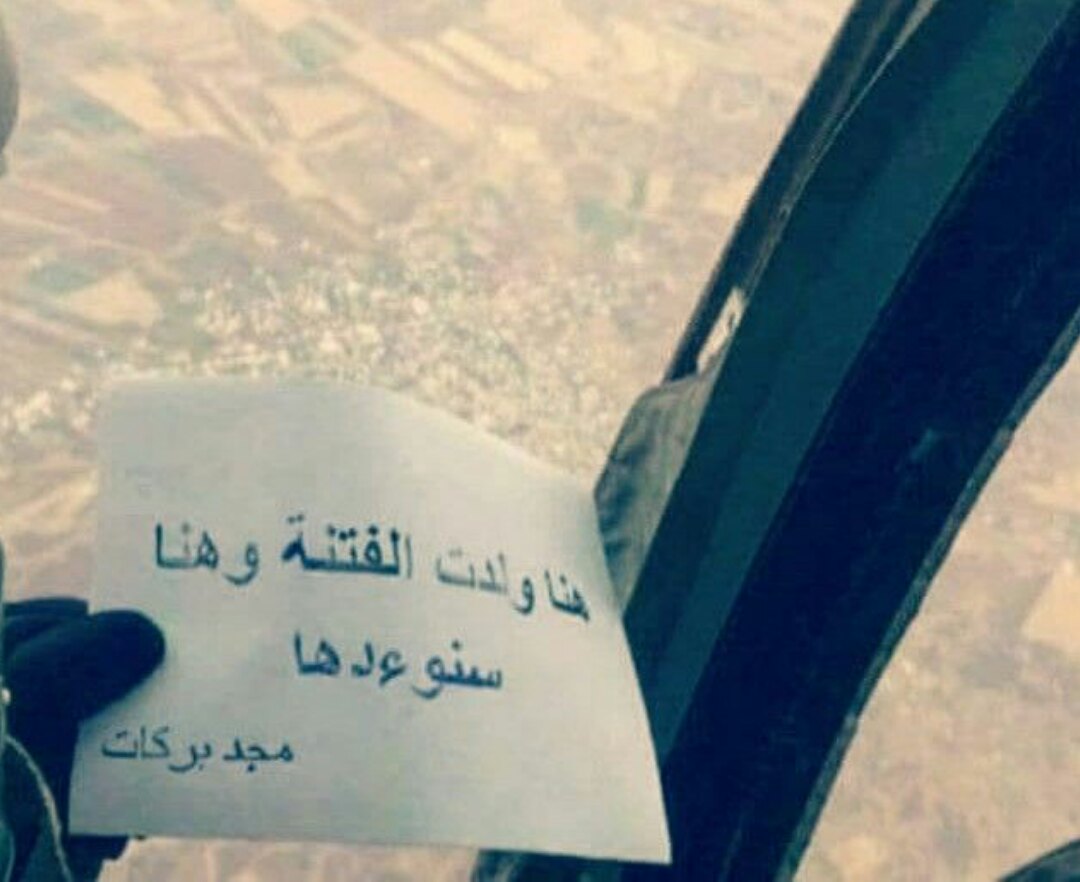 هنا ولدت الفتنة وهنا
سنوءدها
مجد بركات